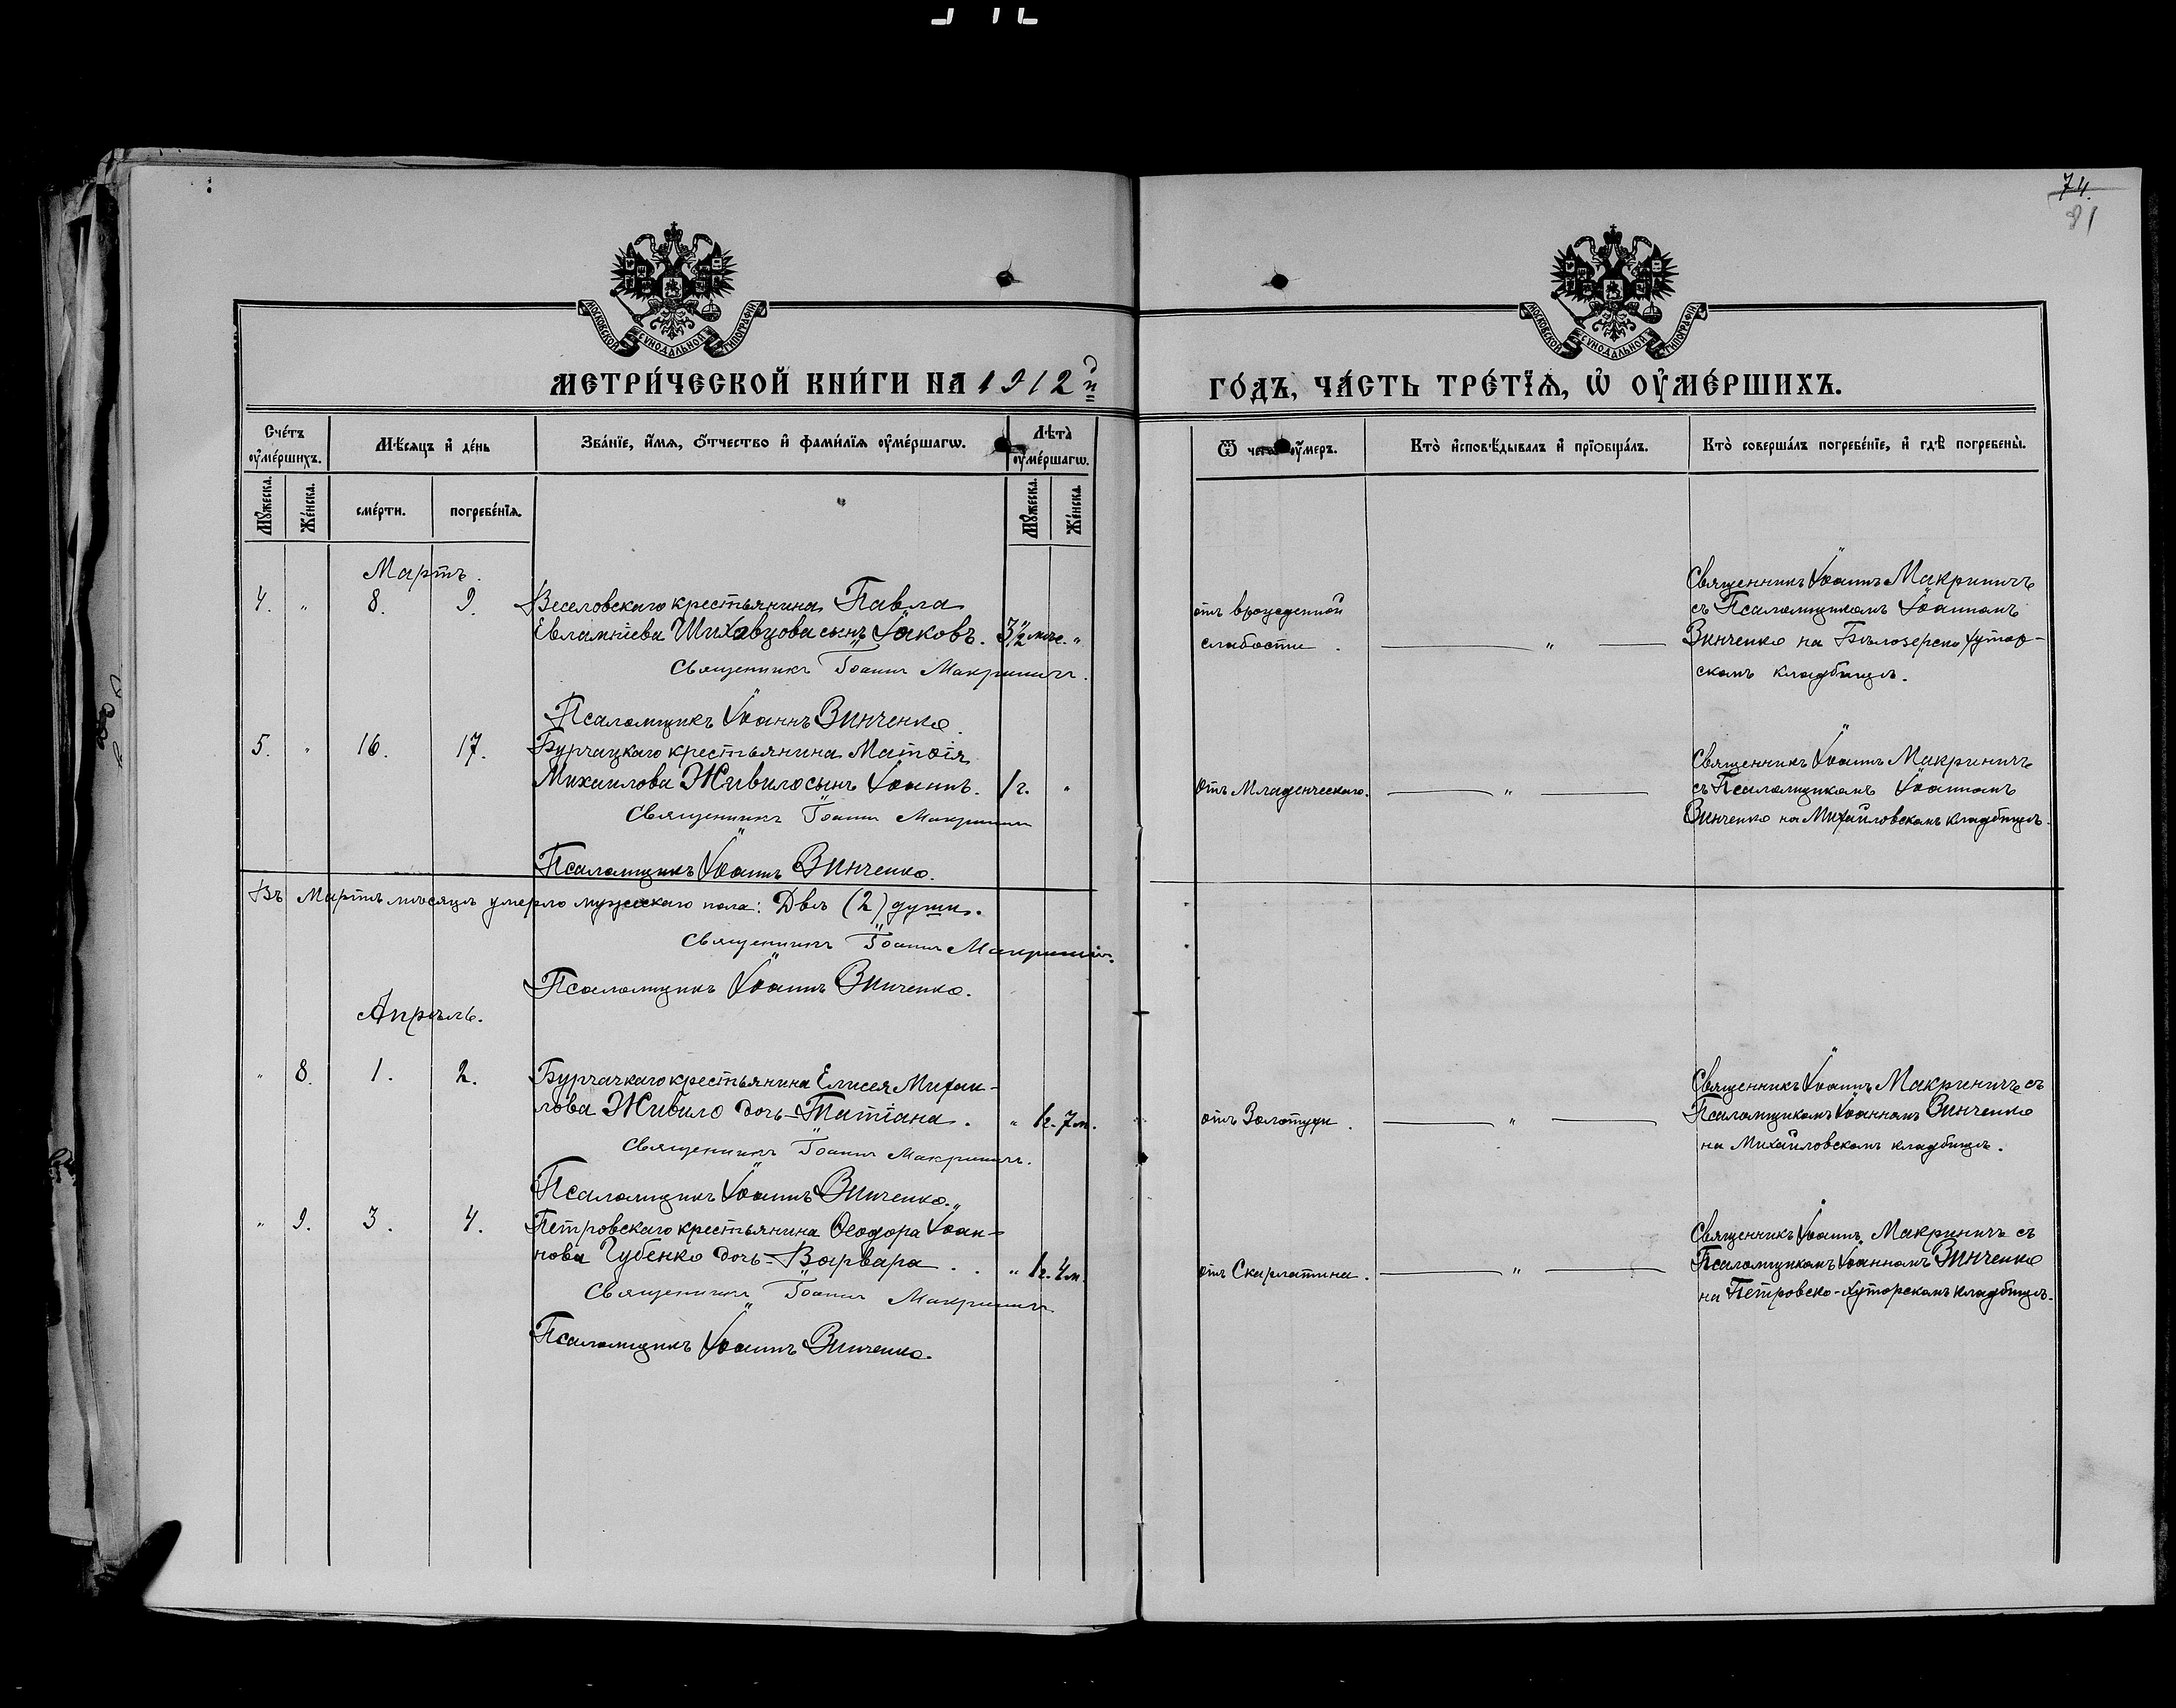 74.
81
МОСКОВСКОЙ СѴНОДАЛЬНОЙ ТИПОГРАФІИ.
МОСКОВСКОЙ СѴНОДАЛЬНОЙ ТИПОГРАФІИ.
МЕТРИ́ЧЕСКОЙ КНИ́ГИ НА 1912й
ГО́ДЪ, ЧА́СТЬ ТРЕ́ТЇѦ, Ѡ҆ ОУ҆МЕ́РШИХЪ.
Сче́тъ оу҆ме́ршихъ.
Мѣ́сяцъ и҆ де́нь
Зва́нїе, и҆́мѧ, ѻ҆́тчество и҆ фами́лїѧ оу҆ме́ршагѡ.
Лѣта̀ оу҆ме́ршагѡ.
Ѿ чегѡ̀ оу҆́меръ.
Кто̀ и҆сповѣ́дывалъ и҆ прїѡбща́лъ.
Кто̀ соверша́лъ погребе́нїе, и҆ гдѣ̀ погребены̀.
Мꙋ́жеска.
Же́нска.
сме́рти.
погребе́нїѧ.
Мꙋ́жеска.
Же́нска.
Мартъ.
4. " 8. 9. Веселовскаго крестьянина Павла
Евлампіева Шиховцова сынъ Іаковъ. 3½ мѣс. "
Священникъ Іоаннъ Макриничъ.
Псаломщикъ Іоаннъ Винченко.
отъ врожденной
слабости. "
Священникъ Іоаннъ Макриничъ
съ Псаломщикомъ Іоанномъ
Винченко на Бѣлозерско хутор-
скомъ кладбищѣ.
5. " 16. 17. Бурчацкаго крестьянина Матѳія
Михаилова Живило сынъ Іоаннъ. 1 г. "
Священникъ Іоаннъ Макриничъ
Псаломщикъ Іоаннъ Винченко.
Отъ Младенческаго. "
Священникъ Іоаннъ Макриничъ
съ Псаломщикомъ Іоанномъ
Винченко на Михайловскомъ кладбищѣ.
Въ Мартѣ мѣсяцѣ умерло мужескаго пола: Двѣ (2) души.
Священникъ Іоаннъ Макриничъ.
Псаломщикъ Іоаннъ Винченко.
Апрѣль.
" 8. 1. 2. Бурчачкаго крестьянина Елисея Михаи-
лова Живило дочь-Татіана. " 1 г. 7 м.
Священникъ Іоаннъ Макриничъ.
Псаломщикъ Іоаннъ Винченко.
отъ Золотухи. "
Священникъ Іоаннъ Макриничъ съ
Псаломщикомъ Іоанномъ Винченко
на Михайловскомъ кладбищѣ.
" 9. 3. 4. Петровскаго крестьянина Ѳеодора Іоан-
нова Губенко дочь-Варвара . . " 1 г. 4 м.
Священникъ Іоаннъ Макриничъ
Псаломщикъ Іоаннъ Винченко.
отъ Скарлатина. "
Священникъ Іоаннъ Макриничъ съ
Псаломщикомъ Іоанномъ Винченко
на Петровско-хуторскомъ кладбищѣ.